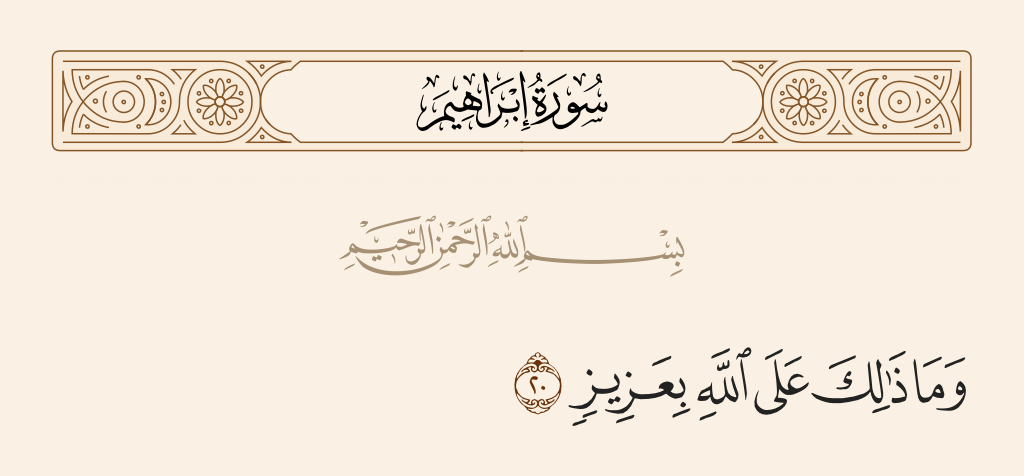 سُورَةُ إِبْرَاهِيمَ
بِسْمِ ٱللَّهِ ٱلرَّحْمَٰنِ ٱلرَّحِيمِ
وَمَا ذَٰلِكَ عَلَى ٱللَّهِ بِعَزِيزٍ ٢٠